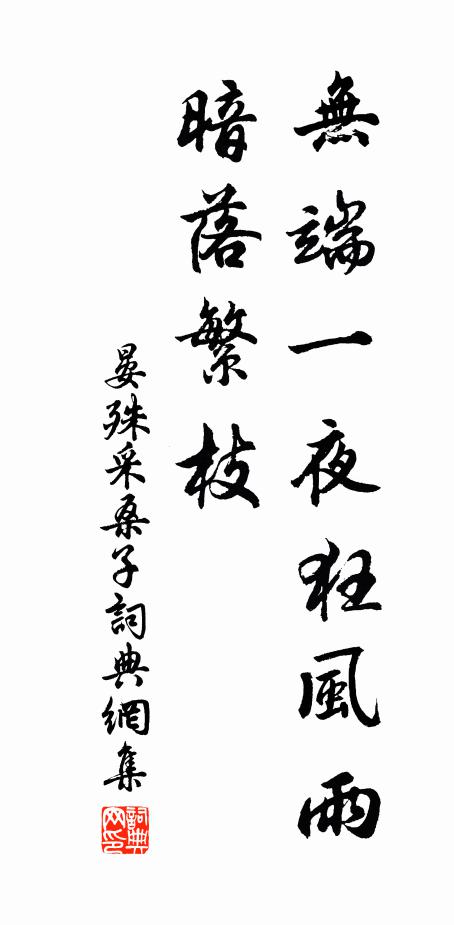 無端一夜狂風雨
暗落繁枝
晏殊采桑子詞典網集
詞典网印